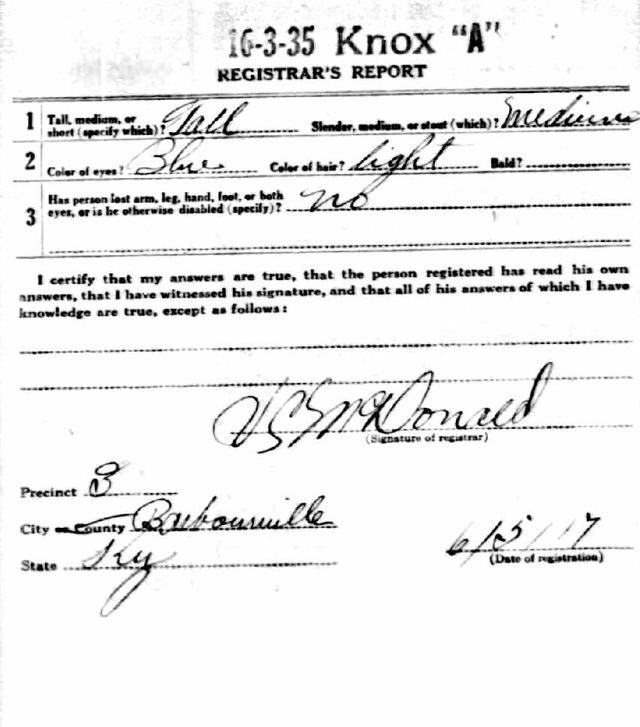 16-3-35 Knox "A"
REGISTRAR'S REPORT
1 Tall, medium, or short (specify which)? Tall Slender, medium, or stout (which)? Medium
2 Color of eyes? Blue Color of hair? light Bald?
3 Has person lost arm, leg, hand, foot, or both eyes, or is he otherwise disabled (specify)? no
I certify that my answers are true, that the person registered has read his own
answers, that I have witnessed his signature, and that all of his answers of which I have
knowledge are true, except as follows:
McDonald
(Signature of registrar)
Precinct 3
City or County Barbourville
State Ky
6/5/17
(Date of registration)